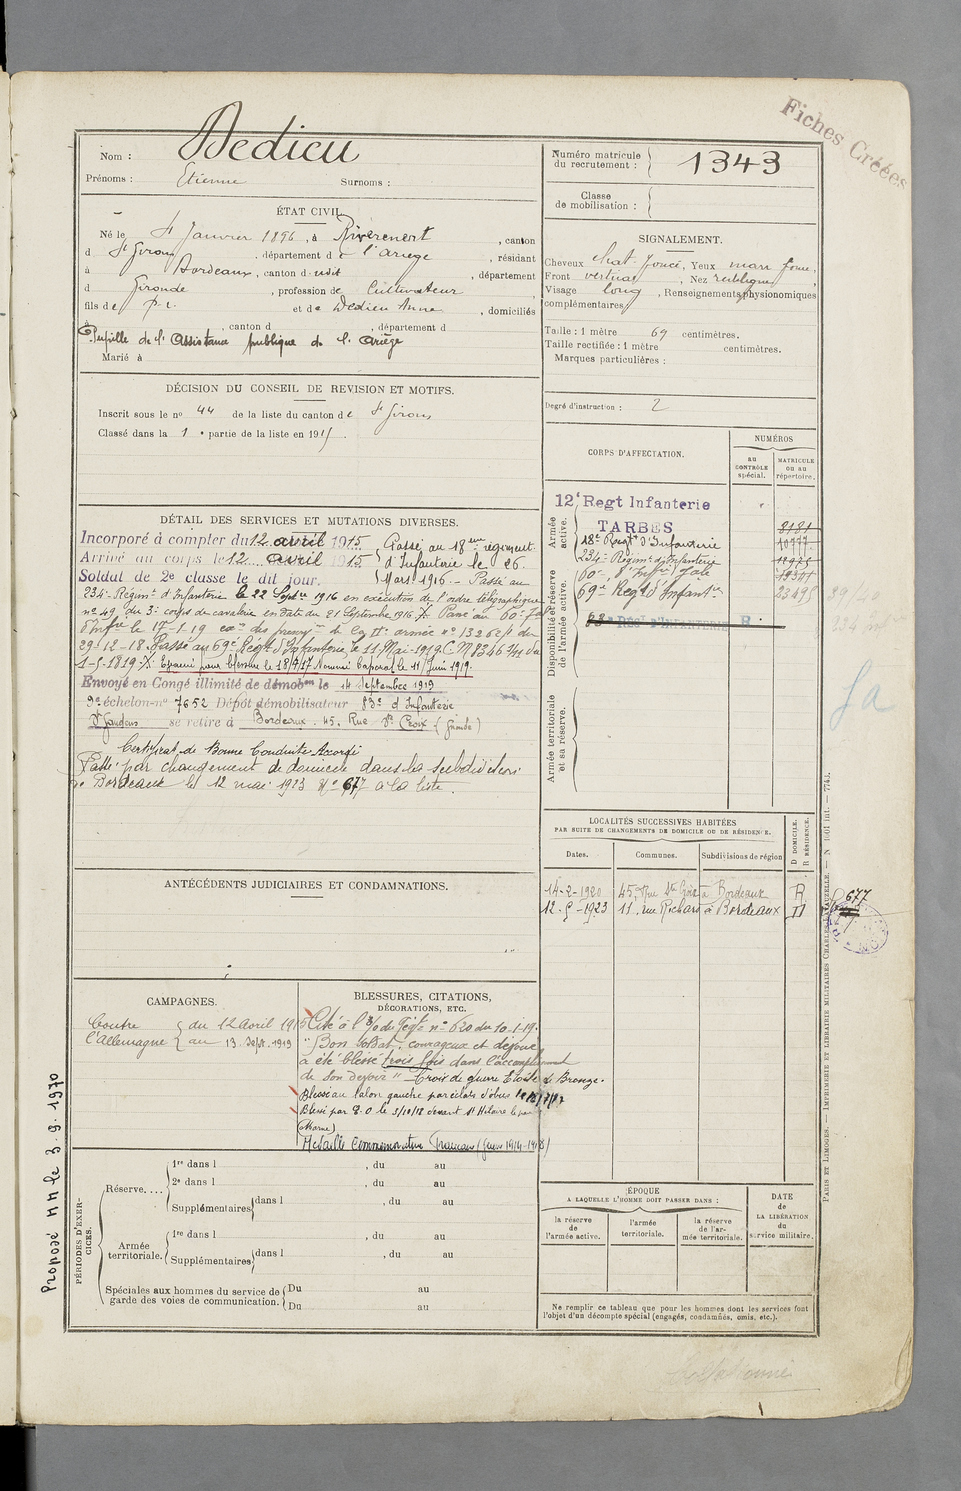 Fiches Créées
Nom : Dedieu
Prénoms : Etienne Surnoms :
Numéro matricule du recrutement : 1343
Classe de mobilisation :
ÉTAT CIVIL
Né le 4 Janvier 1896, à Rivèrenert, canton
d St Girons, département de l'Ariège, résidant
à Bordeaux, canton d udit, département
d Gironde, profession de Cultivateur
fils de p. i. et de Dedieu Anna, domiciliés
à , canton d , département d
Pupille de l'Assistance publique de l'Ariège
Marié à
SIGNALEMENT.
Cheveux chat. foncé, Yeux marr fonc,
Front vertical, Nez rectiligne
Visage long, Renseignements physionomiques
complémentaires
Taille : 1 mètre 69 centimètres.
Taille rectifiée : 1 mètre centimètres.
Marques particulières :
Degré d'instruction : 2
DÉCISION DU CONSEIL DE REVISION ET MOTIFS.
Inscrit sous le no 44 de la liste du canton de St Girons
Classé dans la 1e partie de la liste en 1915.
CORPS D'AFFECTATION.
NUMÉROS
au CONTRÔLE spécial.
MATRICULE ou au répertoire.
Armée active.
12e Regt Infanterie
TARBES 8181
18e Regt d'Infanterie
234e Régiment d'Infanterie
60e d'Inf
69e Regt d'Infantie 23495
Disponibilité et réserve de l'armée active.
Armée territoriale et sa réserve.
DÉTAIL DES SERVICES ET MUTATIONS DIVERSES.
Incorporé à compter du 12 avril 1915
Arrivé au corps le 12 avril 1915
Soldat de 2e classe le dit jour.
Passé au 18eme régiment
d'Infanterie le 26
Mars 1916. - Passé au
234e Régimt d'Infanterie le 22 Septbre 1916 en exécution de l'ordre télégraphique
no 49 du 3e corps de cavalerie en date du 21 Septembre 1916. Passé au 60e
d'Infrie le 17-1-19 du IIe armée no 13262/1 du
29-12-18. Passé au 69e Regt d'Infanterie le 11 Mai 1919. C.M 8346 du
1-5-1919. Evacué pour blessure le 18/7/17 Nommé Caporal le 11 Juin 1919.
Envoyé en Congé illimité de démobon le 14 Septembre 1919
9e échelon no 7652 Dépôt démobilisateur 83e d'Infanterie
St Gaudens se retire à Bordeaux. 45, Rue Ste Croix (Gironde)
Certificat de Bonne Conduite Accordé
Passé par changement de domicile dans la subdivision
de Bordeaux le 12 mai 1923 No 677 à la liste.
LOCALITÉS SUCCESSIVES HABITÉES
PAR SUITE DE CHANGEMENTS DE DOMICILE OU DE RÉSIDENCE.
Dates. Communes. Subdivisions de région D DOMICILE. R RÉSIDENCE.
14-2-1920 45, Rue Ste Croix à Bordeaux R
12-5-1923 11, rue Richard à Bordeaux D
677
ANTÉCÉDENTS JUDICIAIRES ET CONDAMNATIONS.
CAMPAGNES.
Contre l'Allemagne
du 12 Avril 1915
au 13 Sept. 1919
BLESSURES, CITATIONS,
DÉCORATIONS, ETC.
Cité à l'O/ du Régt no 620 du 10-1-19.
"Bon Soldat, courageux et dévoué
a été blessé trois fois dans l'accomplissement
de son devoir" Croix de guerre Etoile de Bronze.
Blessé au talon gauche par éclats d'obus le 18/7/17
Blessé par E.O le 3/10/18 devant St Hilaire le
(Marne)
Médaille Commémorative Française (guerre 1914-1918)
Proposé MM le 3.9.1970
PÉRIODES D'EXERCICES.
Réserve....
1re dans l , du au
2e dans l , du au
Supplémentaires dans l , du au
Armée territoriale.
1re dans l , du au
Supplémentaires dans l , du au
Spéciales aux hommes du service de garde des voies de communication.
Du au
Du au
ÉPOQUE
A LAQUELLE L'HOMME DOIT PASSER DANS :
la réserve de l'armée active.
l'armée territoriale.
la réserve de l'armée territoriale.
DATE de LA LIBÉRATION du service militaire.
Ne remplir ce tableau que pour les hommes dont les services font
l'objet d'un décompte spécial (engagés, condamnés, omis, etc.).
PARIS ET LIMOGES. — IMPRIMERIE ET LIBRAIRIE MILITAIRES CHARLES-LAVAUZELLE.